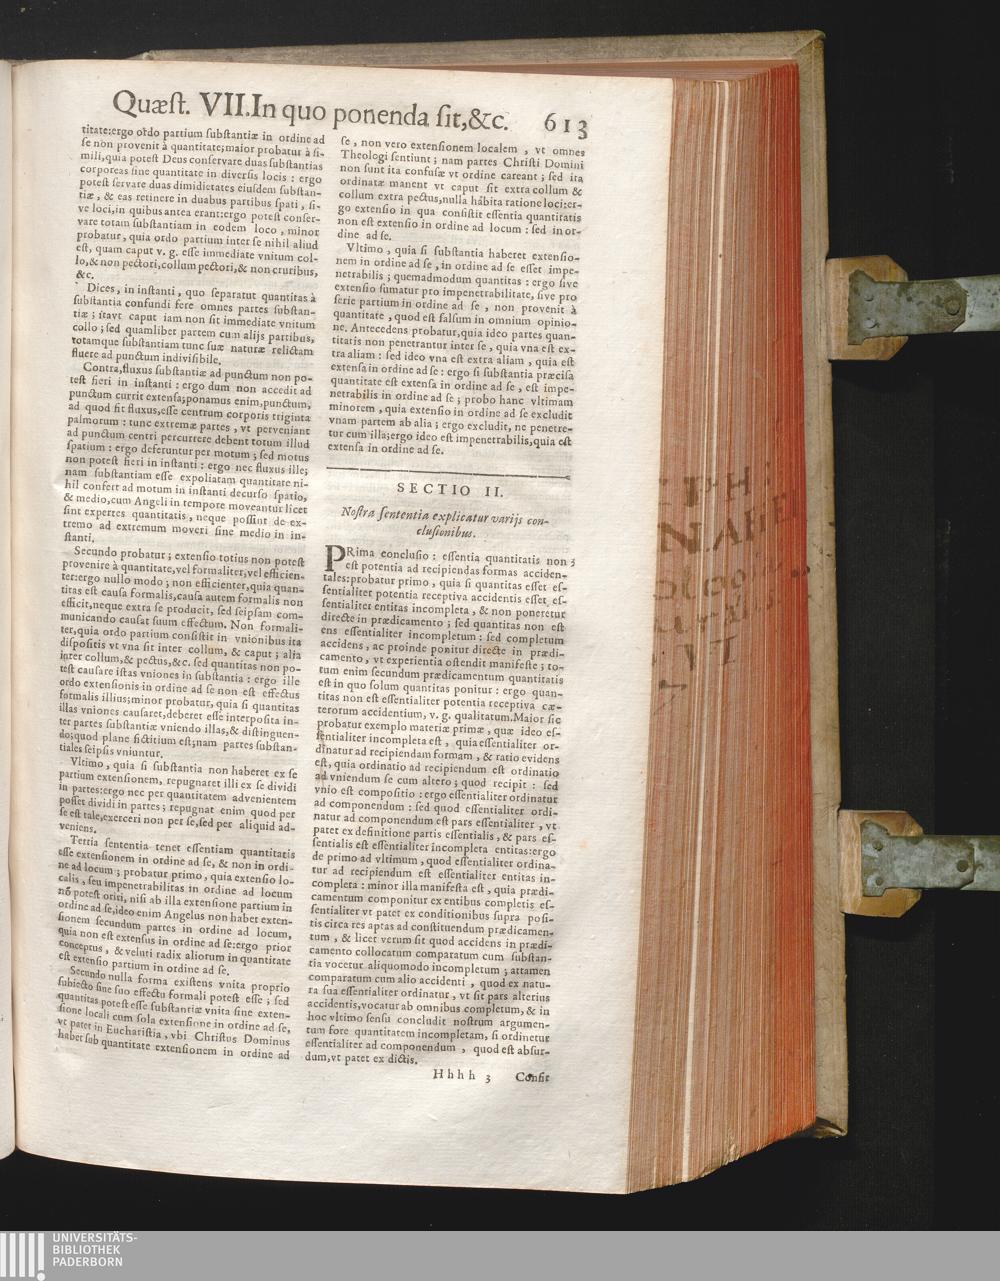 Quæſt. VII. In quo ponenda ſit,&c. 613
titate:ergo ordo partium ſubſtantiæ in ordine ad
ſe non provenit à quantitate;maior probatur à ſi-
mili,quia poteſt Deus conſervare duas ſubſtantias
corporeas ſine quantitate in diverſis locis : ergo
poteſt ſervare duas dimidietates eiuſdem ſubſtan-
tiæ, & eas retinere in duabus partibus ſpati, ſi-
ve loci,in quibus antea erant:ergo poteſt conſer-
vare totam ſubſtantiam in eodem loco, minor
probatur, quia ordo partium inter ſe nihil aliud
eſt, quam caput v. g. eſſe immediate vnitum col-
lo,& non pectori,collum pectori,& non cruribus,
&c.
Dices, in inſtanti, quo ſeparatur quantitas à
ſubſtantia confundi fere omnes partes ſubſtan-
tiæ ; itavt caput iam non ſit immediate vnitum
collo ; ſed quamlibet partem cum alijs partibus,
totamque ſubſtantiam tunc ſuæ naturæ relictam
fluere ad punctum indiviſibile.
Contra,fluxus ſubſtantiæ ad punctum non po-
teſt fieri in inſtanti : ergo dum non accedit ad
punctum currit extenſa;ponamus enim,punctum,
ad quod fit fluxus,eſſe centrum corporis triginta
palmorum : tunc extremæ partes, vt perveniant
ad punctum centri percurrere debent totum illud
ſpatium : ergo deferuntur per motum ; ſed motus
non poteſt fieri in inſtanti : ergo nec fluxus ille;
nam ſubſtantiam eſſe expoliatam quantitate ni-
hil confert ad motum in inſtanti decurſo ſpatio,
& medio,cum Angeli in tempore moveantur licet
ſint expertes quantitatis, neque poſſint de ex-
tremo ad extremum moveri ſine medio in in-
ſtanti.
Secundo probatur ; extenſio totius non poteſt
provenire à quantitate,vel formaliter,vel efficien-
ter:ergo nullo modo ; non efficienter,quia quan-
titas eſt cauſa formalis,cauſa autem formalis non
efficit,neque extra ſe producit, ſed ſeipſam com-
municando cauſat ſuum effectum. Non formali-
ter,quia ordo partium conſiſtit in vnionibus ita
diſpoſitis vt vna ſit inter collum, & caput ; alia
inter collum,& pectus,&c. ſed quantitas non po-
teſt cauſare iſtas vniones in ſubſtantia : ergo ille
ordo extenſionis in ordine ad ſe non eſt effectus
formalis illius;minor probatur, quia ſi quantitas
illas vniones cauſaret,deberet eſſe interpoſita in-
ter partes ſubſtantiæ vniendo illas,& diſtinguen-
do;quod plane fictitium eſt;nam partes ſubſtan-
tiales ſeipſis vniuntur.
Vltimo, quia ſi ſubſtantia non haberet ex ſe
partium extenſionem, repugnaret illi ex ſe dividi
in partes:ergo nec per quantitatem advenientem
poſſet dividi in partes ; repugnat enim quod per
ſe eſt tale,exerceri non per ſe,ſed per aliquid ad-
veniens.
Tertia ſententia tenet eſſentiam quantitatis
eſſe extenſionem in ordine ad ſe, & non in ordi-
ne ad locum ; probatur primo, quia extenſio lo-
calis, ſeu impenetrabilitas in ordine ad locum
nõ poteſt oriri, niſi ab illa extenſione partium in
ordine ad ſe,ideo enim Angelus non habet exten-
ſionem ſecundum partes in ordine ad locum,
quia non eſt extenſus in ordine ad ſe:ergo prior
conceptus, & veluti radix aliorum in quantitate
eſt extenſio partium in ordine ad ſe.
Secundo nulla forma exiſtens vnita proprio
ſubiecto ſine ſuo effectu formali poteſt eſſe ; ſed
quantitas poteſt eſſe ſubſtantiæ vnita ſine exten-
ſione locali cum ſola extenſione in ordine ad ſe,
vt patet in Euchariſtia, vbi Chriſtus Dominus
habet ſub quantitate extenſionem in ordine ad
ſe, non vero extenſionem localem, vt omnes
Theologi ſentiunt ; nam partes Chriſti Domini
non ſunt ita confuſæ vt ordine careant ; ſed ita
ordinatæ manent vt caput ſit extra collum &
collum extra pectus,nulla habita ratione loci:er-
go extenſio in qua conſiſtit eſſentia quantitatis
non eſt extenſio in ordine ad locum : ſed in or-
dine ad ſe.
Vltimo, quia ſi ſubſtantia haberet extenſio-
nem in ordine ad ſe, in ordine ad ſe eſſet impe-
netrabilis ; quemadmodum quantitas : ergo ſive
extenſio ſumatur pro impenetrabilitate, ſive pro
ſerie partium in ordine ad ſe, non provenit à
quantitate, quod eſt falſum in omnium opinio-
ne. Antecedens probatur,quia ideo partes quan-
titatis non penetrantur inter ſe, quia vna eſt ex-
tra aliam : ſed ideo vna eſt extra aliam, quia eſt
extenſa in ordine ad ſe : ergo ſi ſubſtantia præciſa
quantitate eſt extenſa in ordine ad ſe, eſt impe-
netrabilis in ordine ad ſe ; probo hanc vltimam
minorem, quia extenſio in ordine ad ſe excludit
vnam partem ab alia ; ergo excludit, ne penetre-
tur cum illa;ergo ideo eſt impenetrabilis,quia eſt
extenſa in ordine ad ſe.
SECTIO II.
Noſtra ſententia explicatur varijs con-
cluſionibus.
PRima concluſio : eſſentia quantitatis non 3
eſt potentia ad recipiendas formas acciden-
tales:probatur primo, quia ſi quantitas eſſet eſ-
ſentialiter potentia receptiva accidentis eſſet eſ-
ſentialiter entitas incompleta, & non poneretur
directe in prædicamento ; ſed quantitas non eſt
ens eſſentialiter incompletum : ſed completum
accidens, ac proinde ponitur directe in prædi-
camento, vt experientia oſtendit manifeſte ; to-
tum enim ſecundum prædicamentum quantitatis
eſt in quo ſolum quantitas ponitur : ergo quan-
titas non eſt eſſentialiter potentia receptiva cæ-
terorum accidentium, v. g. qualitatum.Maior ſic
probatur exemplo materiæ primæ, quæ ideo eſ-
ſentialiter incompleta eſt, quia eſſentialiter or-
dinatur ad recipiendam formam, & ratio evidens
eſt, quia ordinatio ad recipiendum eſt ordinatio
ad vniendum ſe cum altero ; quod recipit : ſed
vnio eſt compoſitio : ergo eſſentialiter ordinatur
ad componendum : ſed quod eſſentialiter ordi-
natur ad componendum eſt pars eſſentialiter, vt
patet ex definitione partis eſſentialis, & pars eſ-
ſentialis eſt eſſentialiter incompleta entitas:ergo
de primo ad vltimum, quod eſſentialiter ordina-
tur ad recipiendum eſt eſſentialiter entitas in-
completa : minor illa manifeſta eſt, quia prædi-
camentum componitur ex entibus completis eſ-
ſentialiter vt patet ex conditionibus ſupra poſi-
tis circa res aptas ad conſtituendum prædicamen-
tum, & licet verum ſit quod accidens in prædi-
camento collocatum comparatum cum ſubſtan-
tia vocetur aliquomodo incompletum ; attamen
comparatum cum alio accidenti, quod ex natu-
ra ſua eſſentialiter ordinatur, vt ſit pars alterius
accidentis,vocatur ab omnibus completum,& in
hoc vltimo ſenſu concludit noſtrum argumen-
tum fore quantitatem incompletam, ſi ordinetur
eſſentialiter ad componendum, quod eſt abſur-
dum,vt patet ex dictis.
Hhhh 3 Conſit
UNIVERSITÄTS-
BIBLIOTHEK
PADERBORN